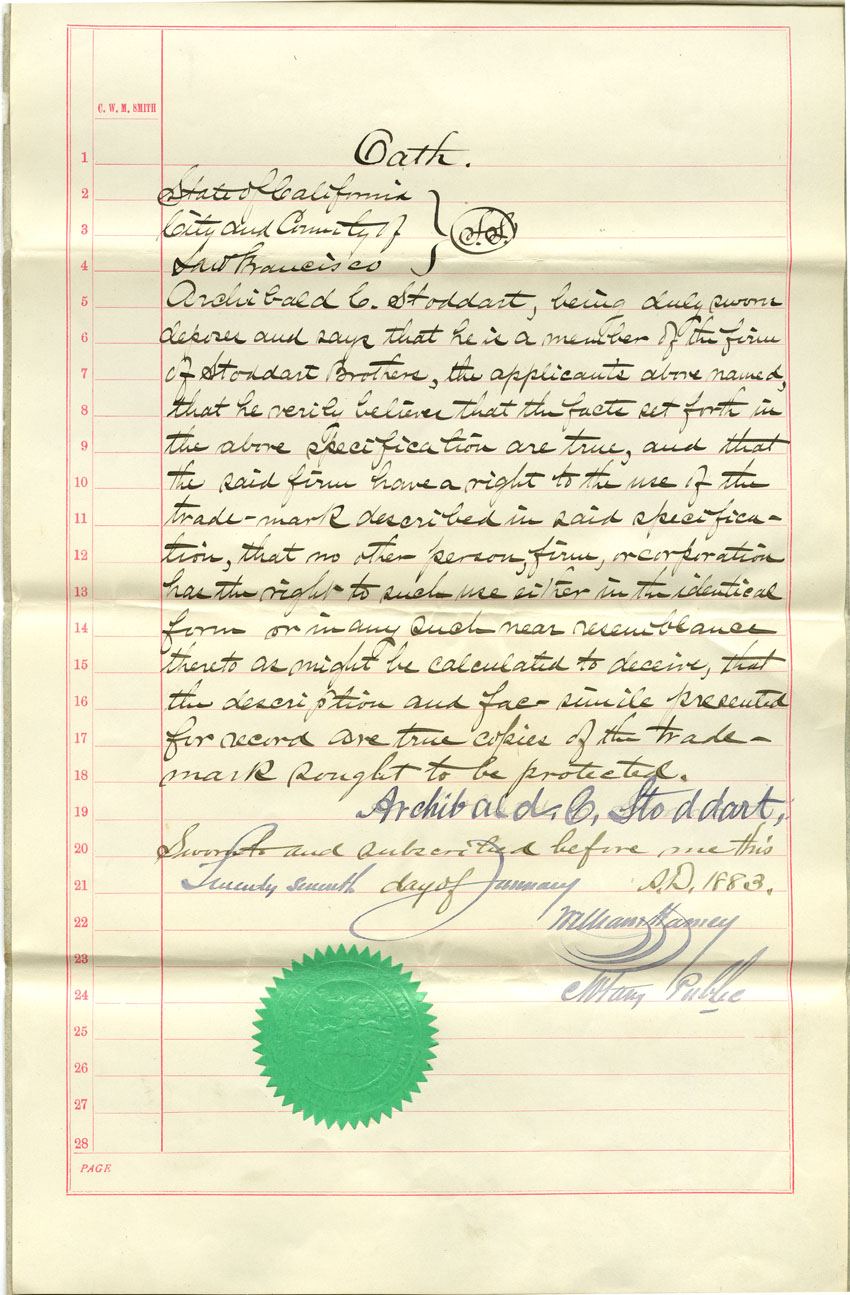 C. W. M. SMITH
1 Oath.
2 State of California
3 City and County of } S.S.
4 San Francisco
5 Archibald C. Stoddart, being duly sworn
6 deposes and says that he is a member of the firm
7 of Stoddart Brothers, the applicants above named,
8 that he verily believes that the facts set forth in
9 the above specification are true, and that
10 the said firm have a right to the use of the
11 trade-mark described in said specifica-
12 tion, that no other person, firm, or corporation
13 has the right to such use either in the identical
14 form or in any such near resemblance
15 thereto as might be calculated to deceive, that
16 the description and fac-simile presented
17 for record are true copies of the trade-
18 mark sought to be protected.
19 Archibald. C. Stoddart.
20 Sworn to and subscribed before me this
21 Twenty seventh day of January A.D. 1883.
22 William Harney
23
24 Notary Public
25
26
27
28
PAGE